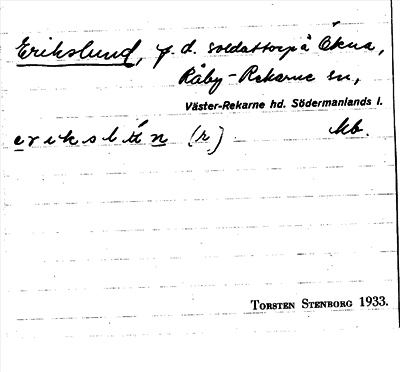 Erikslund, f. d. soldattorp å Ökna,
Råby-Rekarne sn,
Väster-Rekarne hd. Södermanlands l.
erikslún (r)
Mb.
TORSTEN STENBORG 1933.